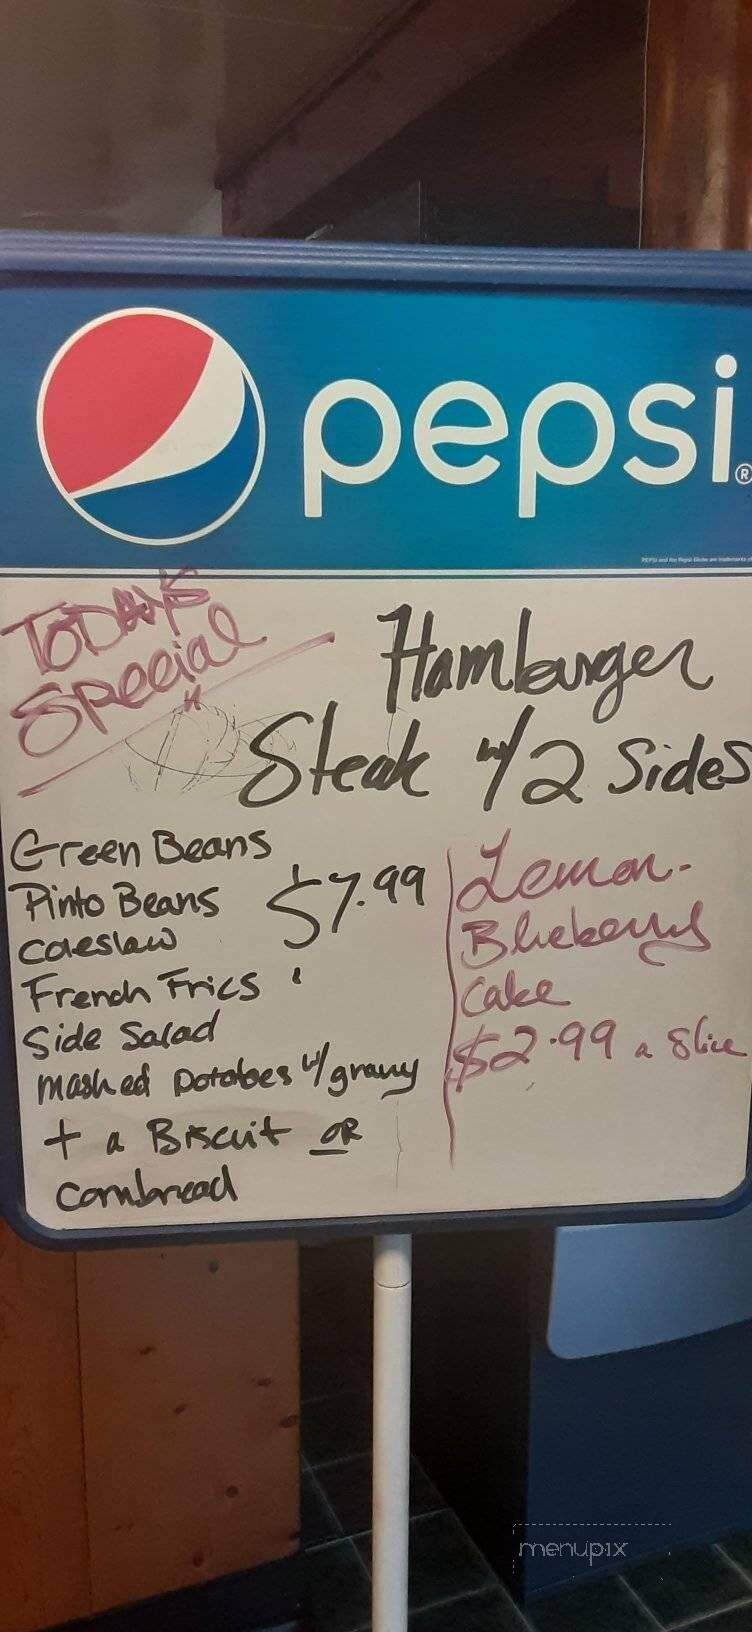 pepsi®
TODAYS
SPECIAL
Hamburger
Steak w/2 Sides
Green Beans
Pinto Beans
Coleslaw
French Fries
Side Salad
Mashed Potatoes w/gravy
+ a Biscuit OR
Cornbread
$7.99
Lemon-
Blueberry
Cake
$2.99 a Slice
menupix